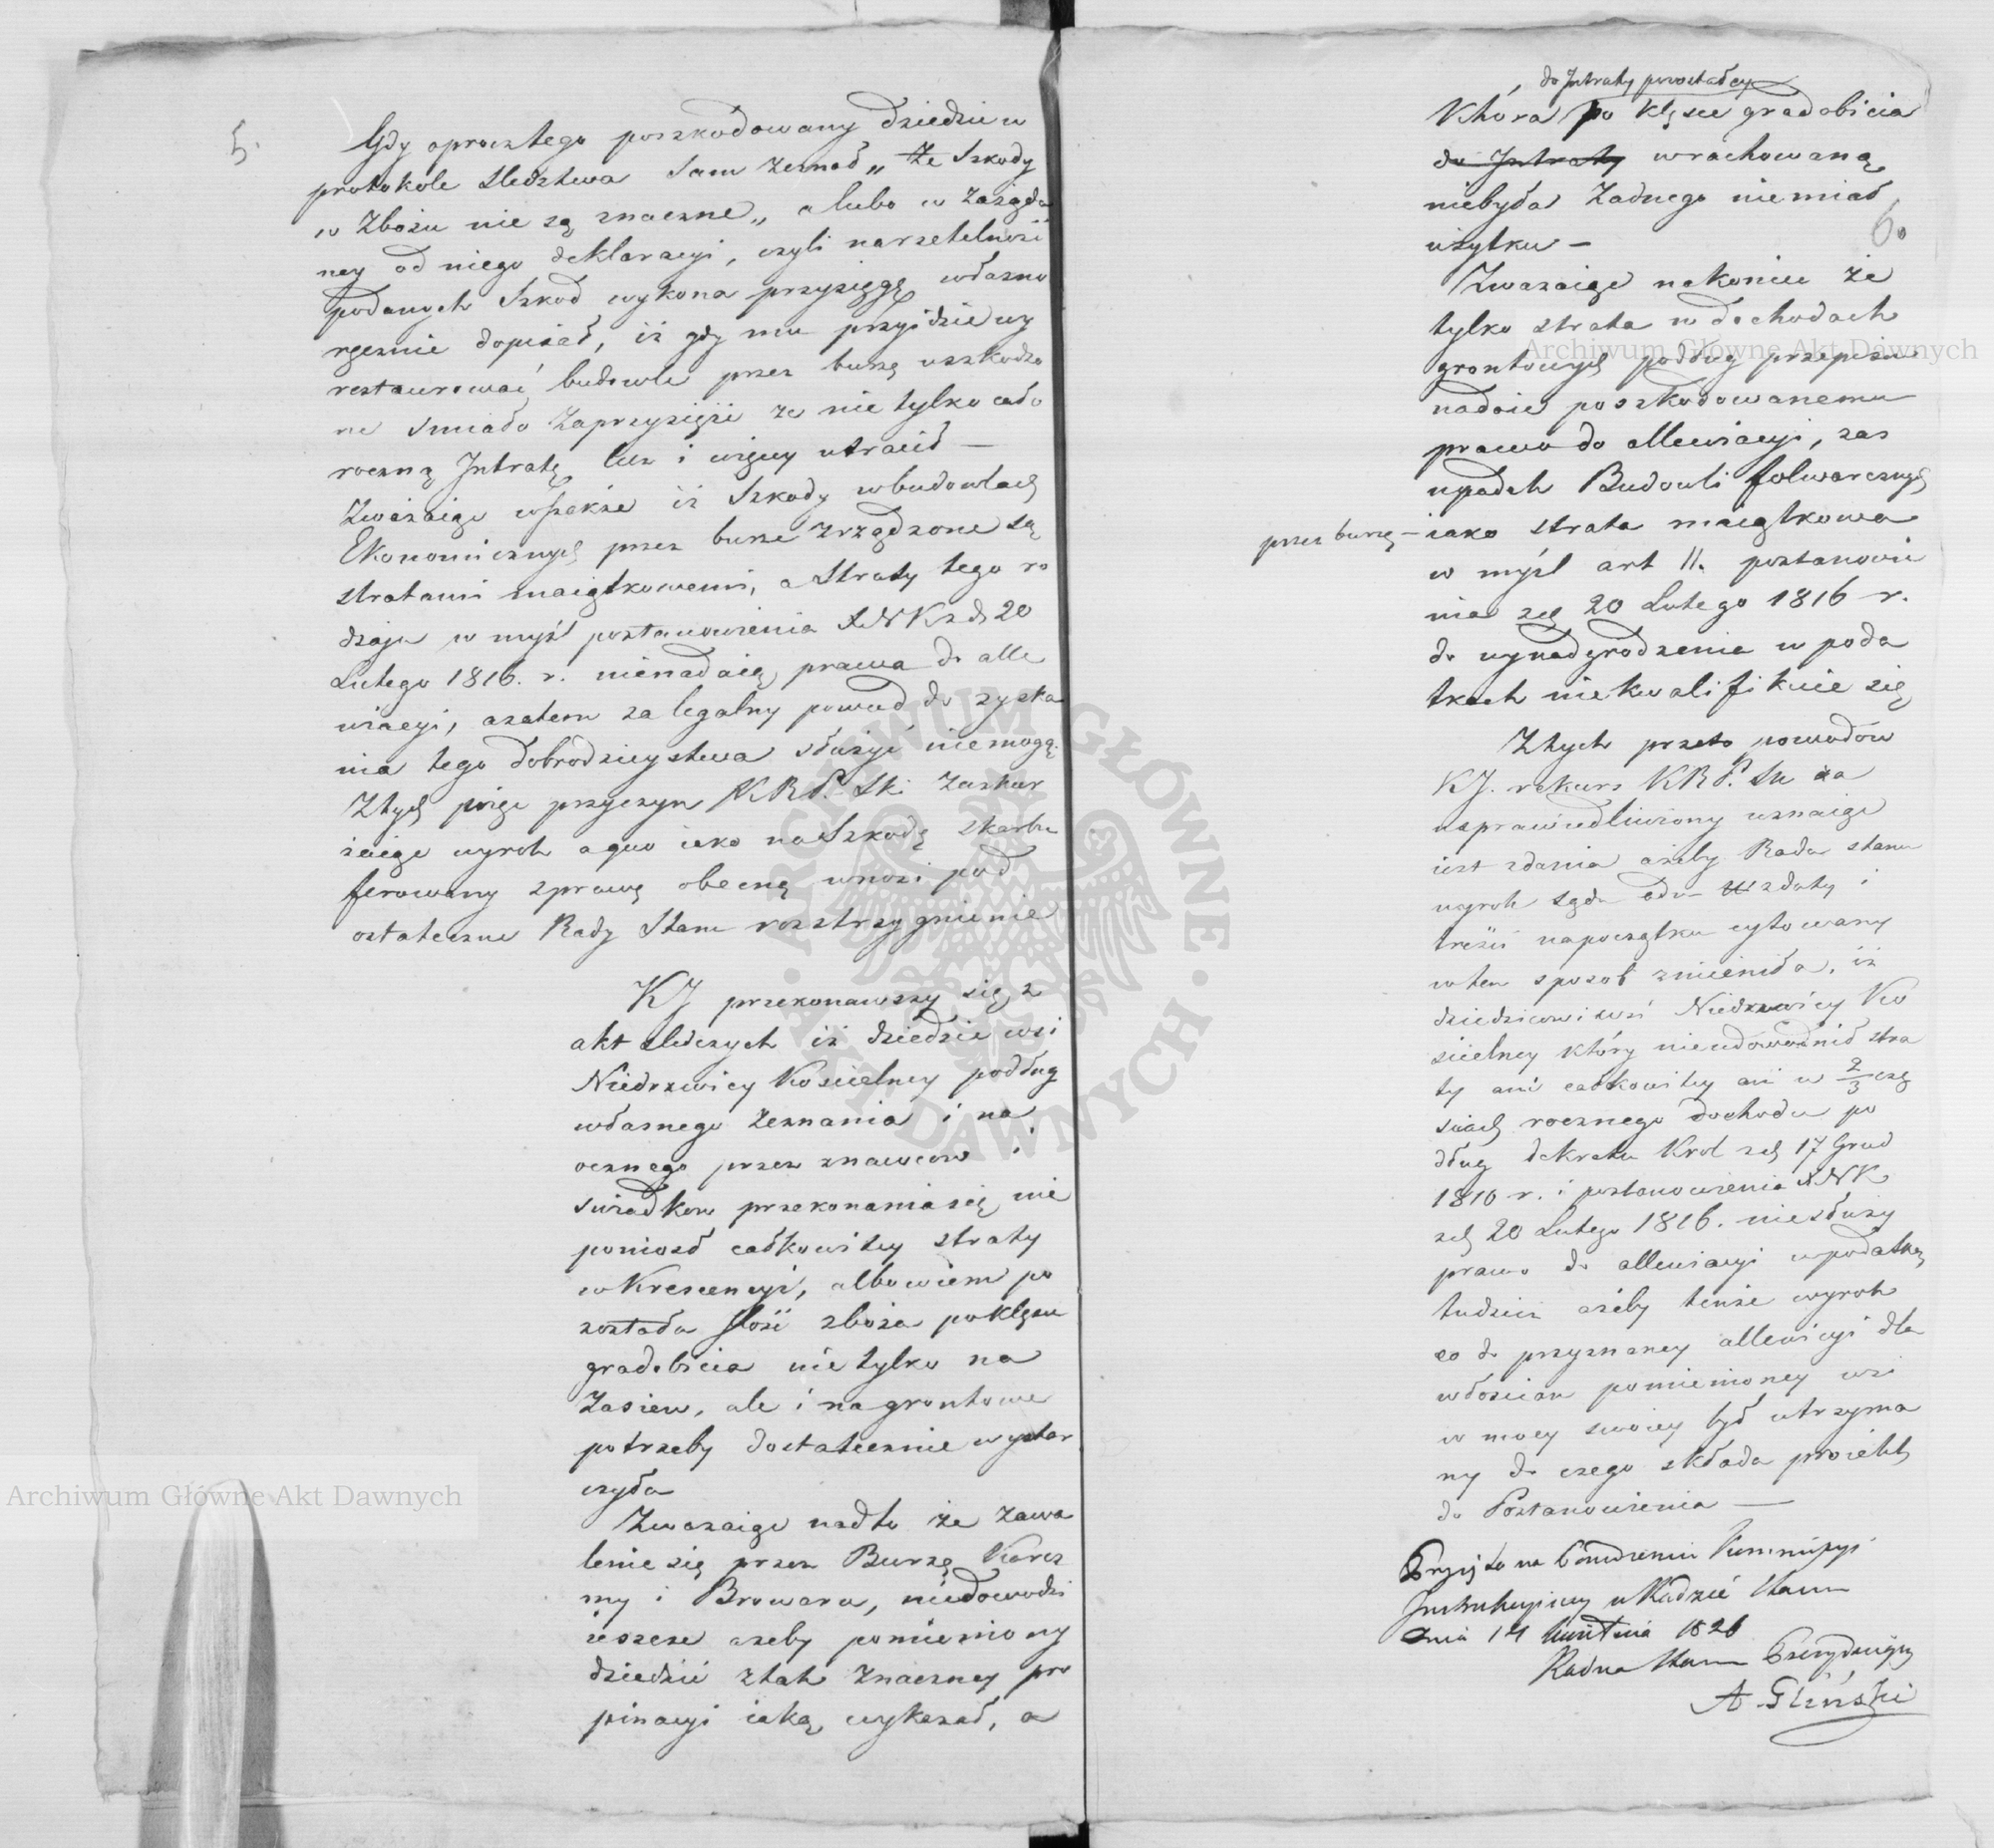 5.
Gdy oprocz tego poszkodowany Dziedzic w
protokole Sledztwa Sam zeznał „ Że Szkody
w Zbożu nie są znaczne „ a lubo w zażąda
ney od niego deklaracyi, czyli na rzetelność
podanych Szkod wykona przysięgę własno
ręcznie dopisał, iż gdy mu przyidzie wy
restaurować budowle przez burzę uszkodzo
ne śmiało Zaprzysięże ze nie tylko cało
roczną Intratę lecz i więcey utracił —
Zważaiąc wszakże iż Szkody w budowlach
Ekonomicznych przez burze zrządzone są
stratami maiątkowemi, a Straty tego ro
dzaju w myśl postanowienia XNK z d. 20
Lutego 1816. r. nienadaią prawa do alle
wiacyi, a zatem za legalny powod do zyska
nia tego dobrodzieystwa służyć niemogą.
Z tych więc przyczyn KRP. Ski Zaskar
żaiąc wyrok a quo iako na Szkodę Skarbu
ferowany sprawę obecną wnosi pod
ostateczne Rady Stanu rozstrzygnienie
KJ przekonawszy się z
akt śledczych iż dziedzic wsi
Niedrzwicy Kościelney podług
własnego Zeznania i na
ocznego przez znawcow i
swiadkow przekonania się nie
poniosł całkowitey straty
w Krescencyi, albowiem po
została ilość zboża po klęsce
gradobicia nie tylko na
Zasiew, ale i na grontowe
potrzeby dostatecznie wystar
czyła
Zwazaiąc nadto że zawa
lenie się przez Burzę Karcz
my i Browaru, niedowodzi
ieszcze azeby pomieniony
dziedzic z tak znaczney pro
pinacyi iaką wykazał, a
do Intraty pozostałey
Która po klęsce gradobicia
do Intraty wrachowaną
niebyła Żadnego niemiał
użytku —
6.
Zwazaiąc nakoniec że
tylko strata w dochodach
grontowych podług przepisu
nadaie poszkodowanemu
prawo do allewiacyi, zas
upadek Budowli folwarcznych
przez burzę — iako strata maiątkowa
w myśl art 11. postanowie
nia z d. 20 Lutego 1816 r.
do wynadgrodzenia w poda
tkach niekwalifikuie się
Z tych przeto powodów
KJ. rekurs KRP. Sk za
usprawiedliwiony uznaiąc
iest zdania ażeby Rada Stanu
wyrok Sądu adm z daty i
treści napoczątku cytowany
w ten sposob zmieniła, iż
dziedzicowi wsi Niedrzwicy Ko
scielney który nieudowodnił stra
ty ani całkowitey ani w 2/3 czę
sciach rocznego dochodu po
dług dekretu Krol z d. 17 Grud
1810 r. i postanowienia XNK
z d. 20 Lutego 1816. niesłuży
prawo do allewiacyi w podatku,
tudzież ażeby tenże wyrok
co do przyznaney allewiacyi dla
włościan pomienioney wsi
w mocy swoiey był utrzyma
ny do czego składa proiekt
do Postanowienia —
Przyięto na Posiedzeniu Kommissyi
Instrukcyiney w Radzie Stanu
dnia 14 Kwietnia 1826
Radca Stanu Prezyduiący
A. Gliński
Archiwum Główne Akt Dawnych
Archiwum Główne Akt Dawnych
ARCHIWUM GŁÓWNE · AKT DAWNYCH ·